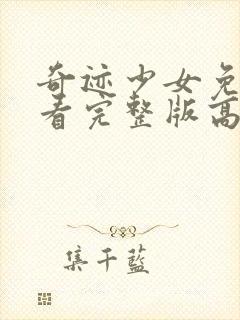 奇迹少女免
看完整版高
集千藍